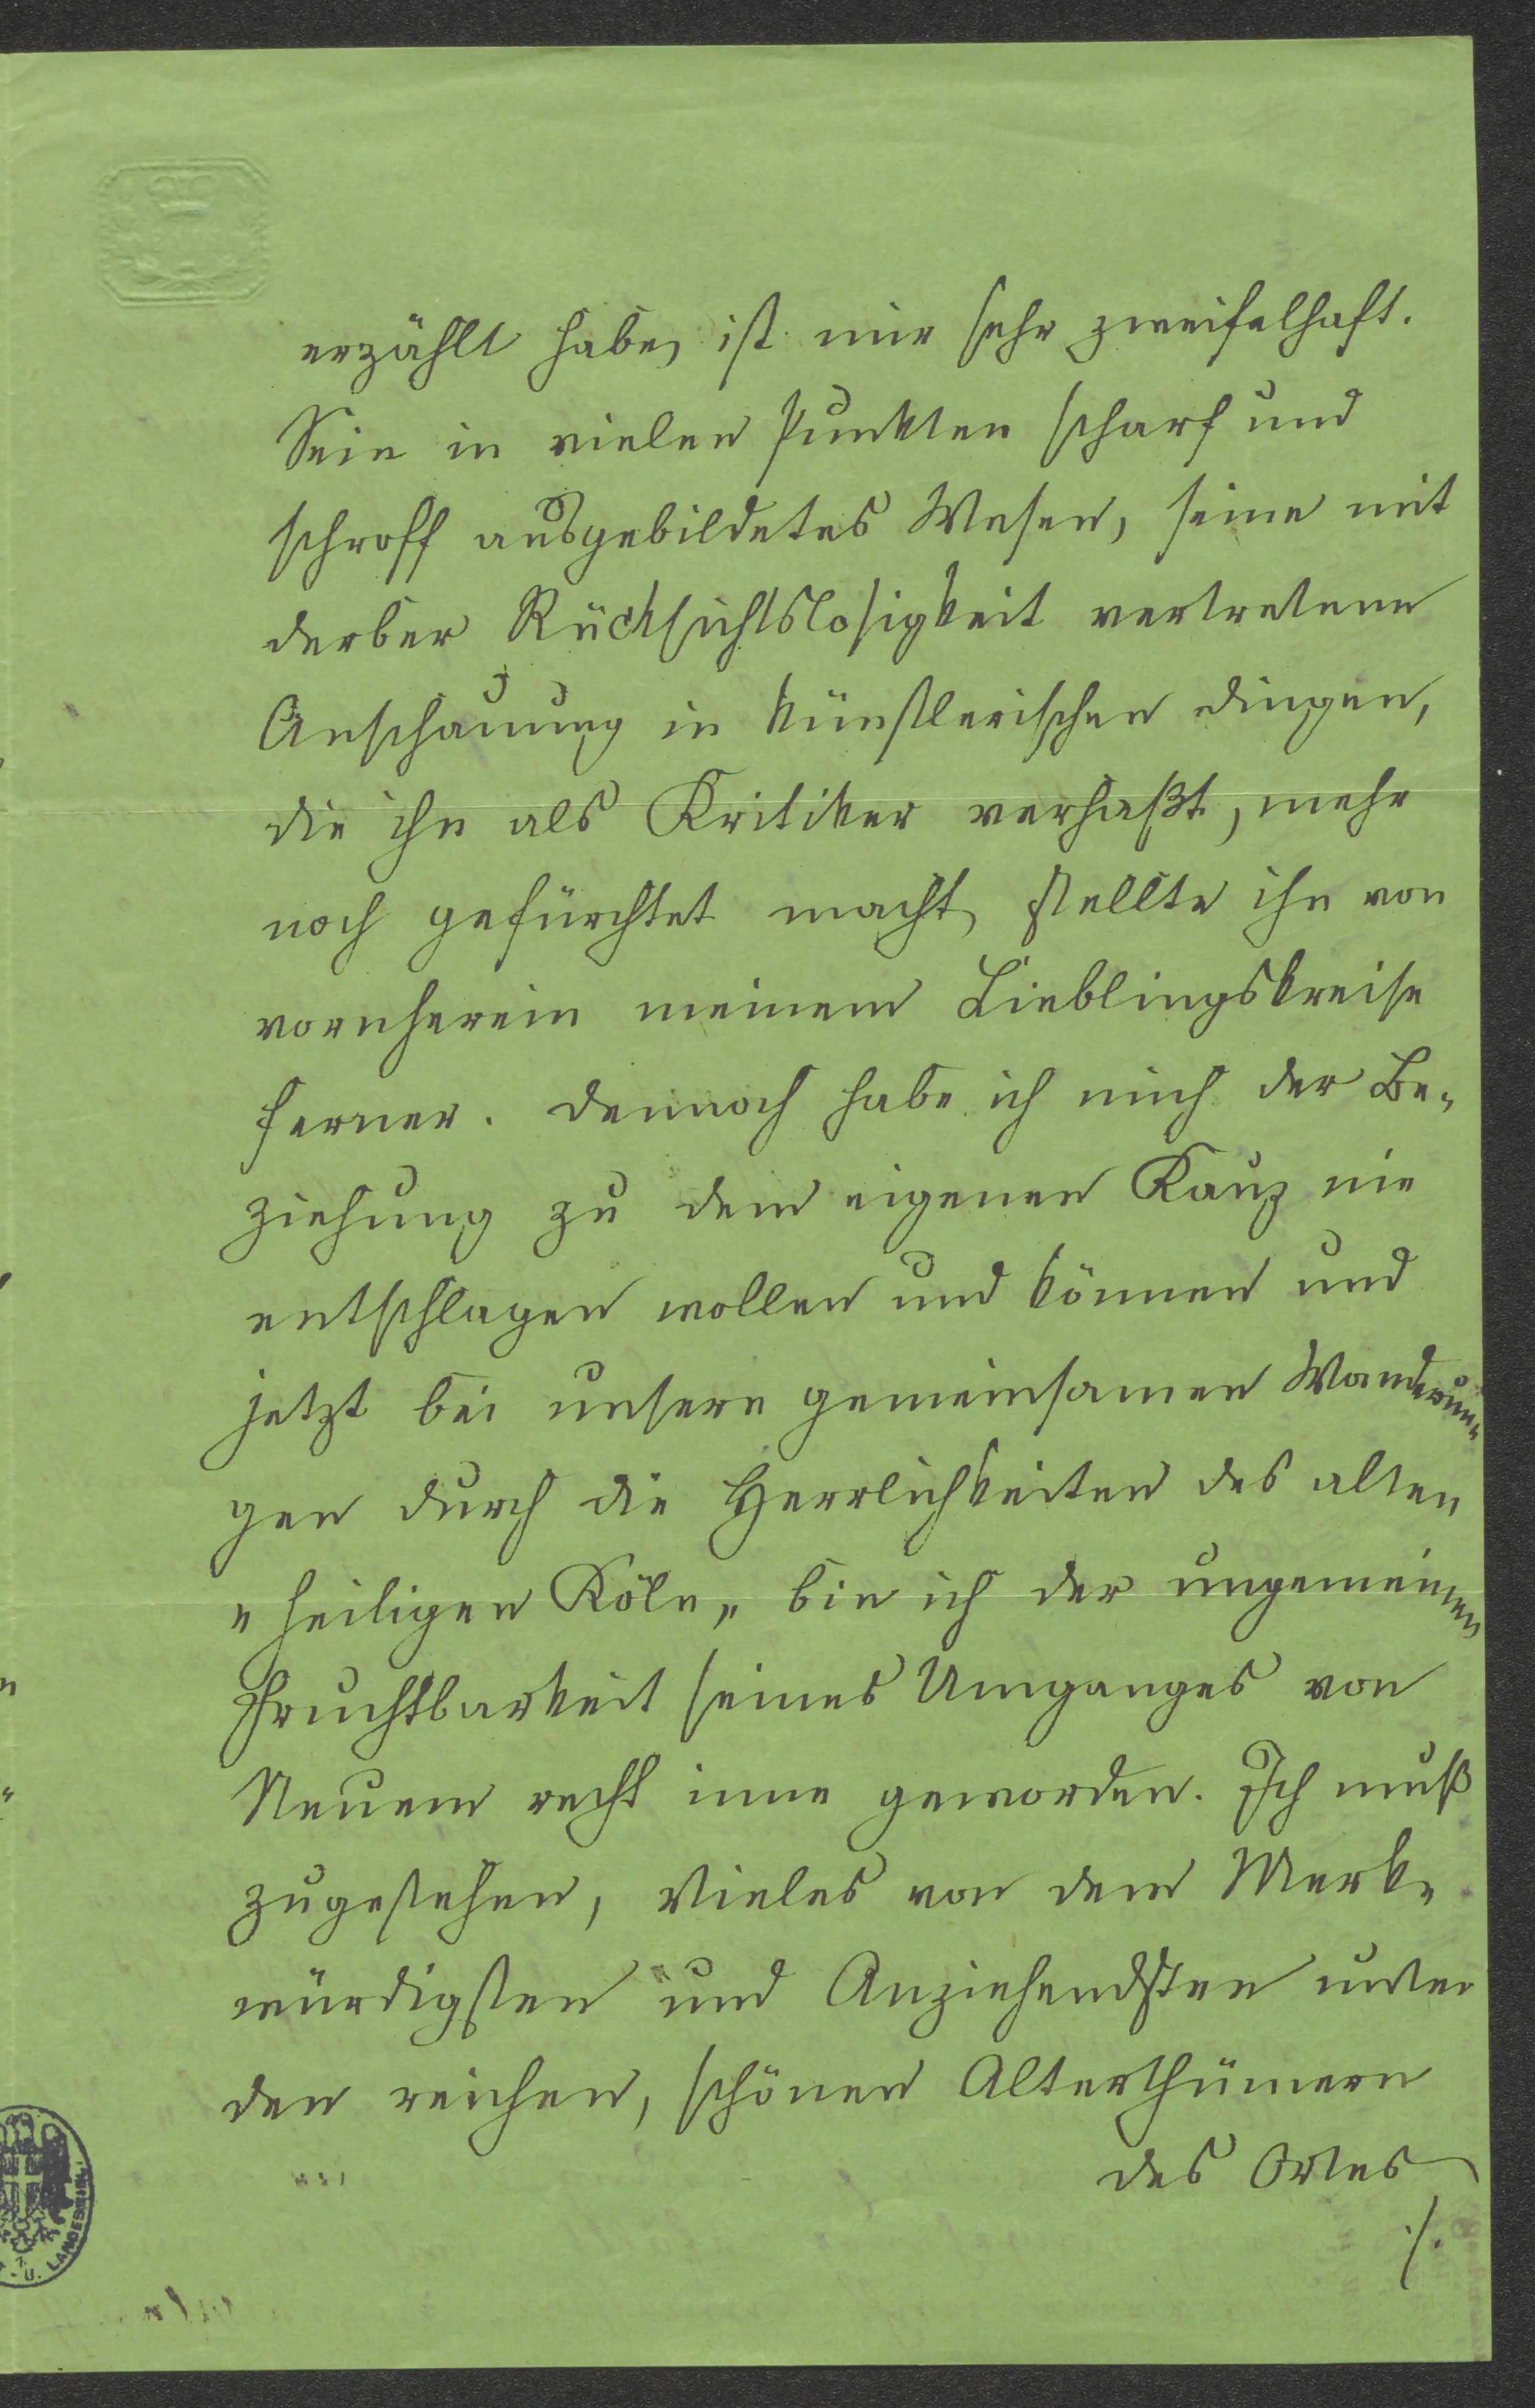 erzählt habe, ist mir sehr zweifelhaft.
Sein in vielen Punkten scharf und
schroff ausgebildetes Wesen, seine mit
derber Rücksichtslosigkeit vertretene
Anschauung in künstlerischen Dingen,
die ihn als Kritiker verhaßt, mehr
noch gefürchtet macht, stellte ihn von
vornherein meinem Lieblingskreise
ferner. Dennoch habe ich mich der Be-
ziehung zu dem eigenen Kauz nie
entschlagen wollen und können und
jetzt bei unsern gemeinsamen Wanderun-
gen durch die Herrlichkeiten des alten
"heiligen Köln" bin ich der ungemeinen
Fruchtbarkeit seines Umganges von
Neuem recht inne geworden. Ich muß
zugestehen, Vieles von dem Merk-
würdigsten und Anziehendsten unter
den reichen, schönen Alterthümern
des Ortes
./.
U. LANDESBIBL.